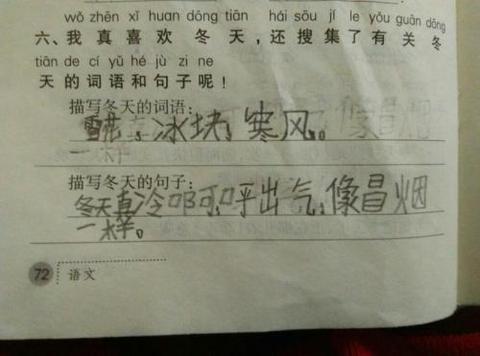 wǒ zhēn xǐ huan dōng tiān hái sōu jí le yǒu guān dōng
六、我真喜欢冬天，还搜集了有关冬
tiān de cí yǔ hé jù zi ne
天的词语和句子呢！
描写冬天的词语：
雪花，冰块，寒风。
描写冬天的句子：
冬天真冷啊，呼出气，像冒烟
一样。
72 语文